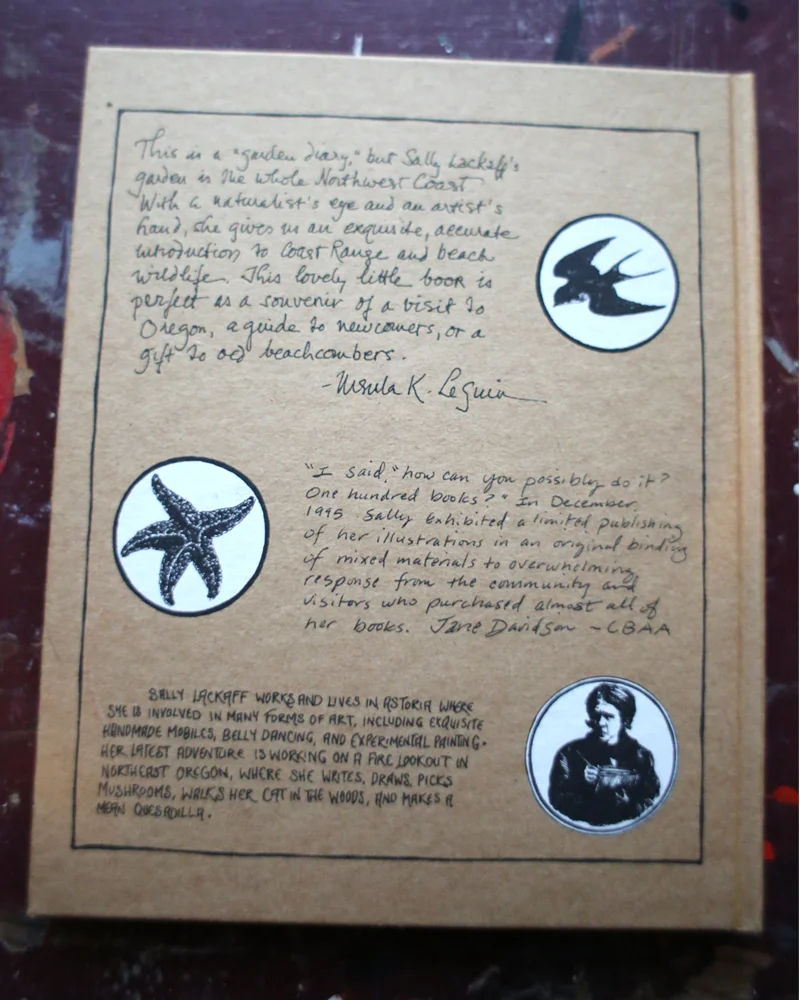 This is a "garden diary," but Sally Lackaff's
garden is the whole Northwest Coast
With a naturalist's eye and an artist's
hand, she gives us an exquisite, accurate
introduction to Coast Range and beach
wildlife. This lovely little book is
perfect as a souvenir of a visit to
Oregon, a guide to newcomers, or a
gift to old beachcombers.
-Ursula K. LeGuin
"I said, "how can you possibly do it?
One hundred books?" In December,
1995 Sally exhibited a limited publishing
of her illustrations in an original binding
of mixed materials to overwhelming
response from the community and
visitors who purchased almost all of
her books. Jane Davidson - CBAA
SALLY LACKAFF WORKS AND LIVES IN ASTORIA WHERE
SHE IS INVOLVED IN MANY FORMS OF ART, INCLUDING EXQUISITE
HANDMADE MOBILES, BELLY DANCING, AND EXPERIMENTAL PAINTING.
HER LATEST ADVENTURE IS WORKING ON A FIRE LOOKOUT IN
NORTHEAST OREGON, WHERE SHE WRITES, DRAWS, PICKS
MUSHROOMS, WALKS HER CAT IN THE WOODS, AND MAKES A
MEAN QUESADILLA.